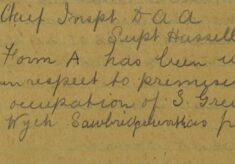 Chief Inspt D A A
Supt Hassell
Form A has been
in respect to premises
occupation of S. Gre
Wych Sawbridgeworth has